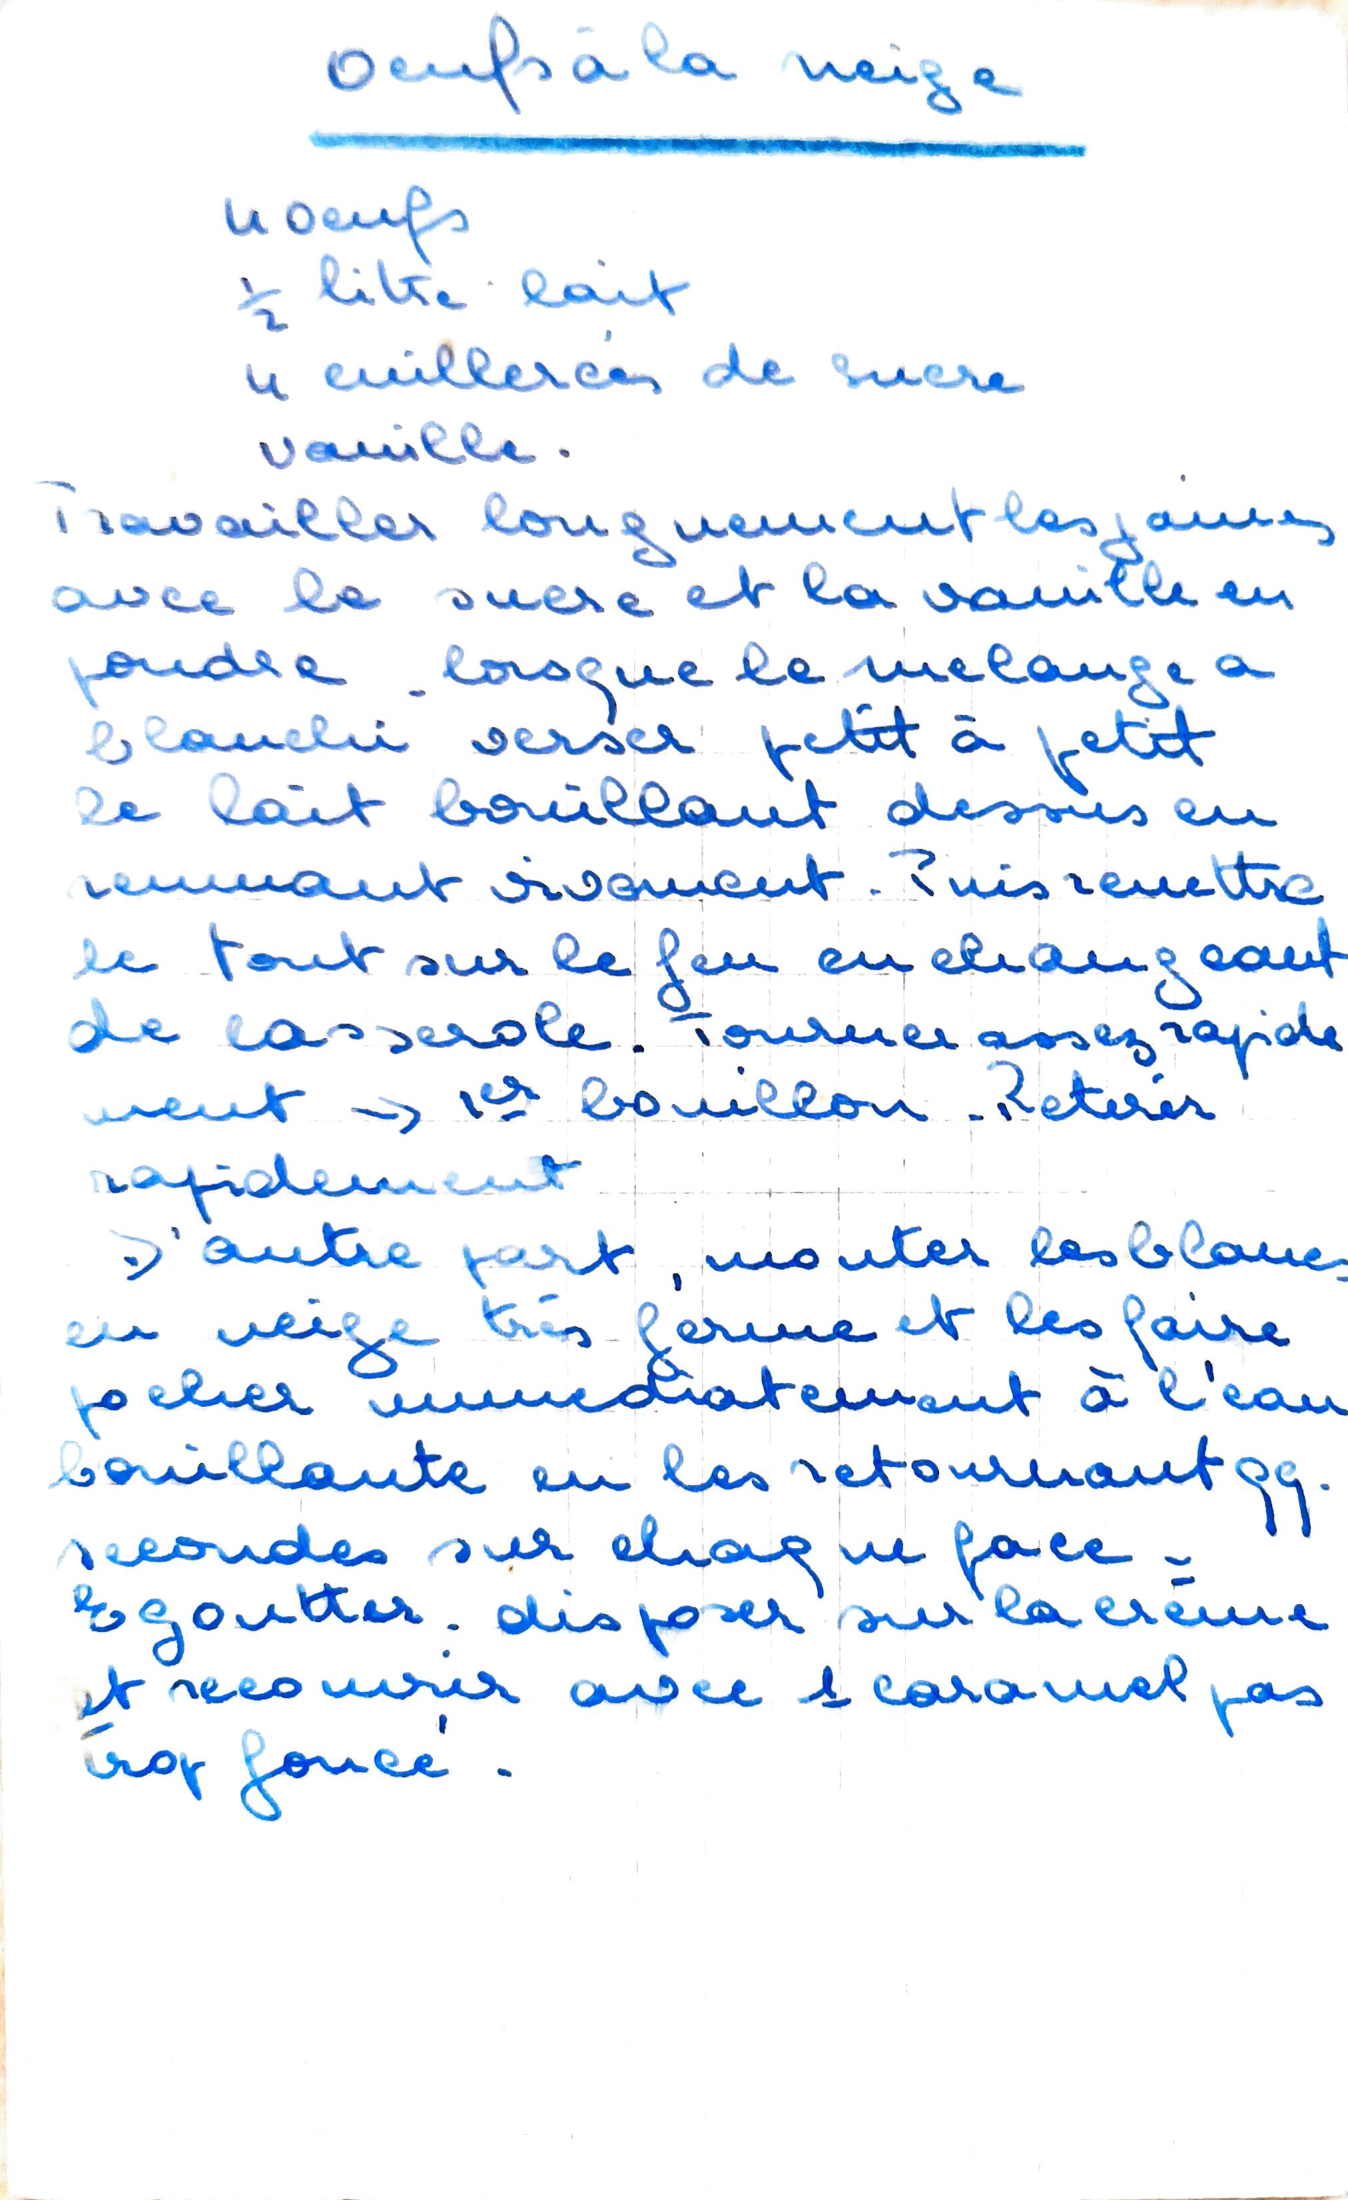 Oeufs à la neige
4 oeufs
1/2 litre lait
4 cuillerées de sucre
vanille.
Travailler longuement les jaunes
avec le sucre et la vanille en
poudre - lorsque le mélange a
blanchi verser petit à petit
le lait bouillant dessus en
remuant vivement. Puis remettre
le tout sur le feu en changeant
de casserole. Tourner assez rapide
ment → 1er bouillon - Retirer
rapidement
D'autre part, monter les blancs
en neige très ferme et les faire
pocher immediatement à l'eau
bouillante en les retournant qq.
secondes sur chaque face -
Egoutter. disposer sur la crème
et recouvrir avec 1 caramel pas
trop foncé.